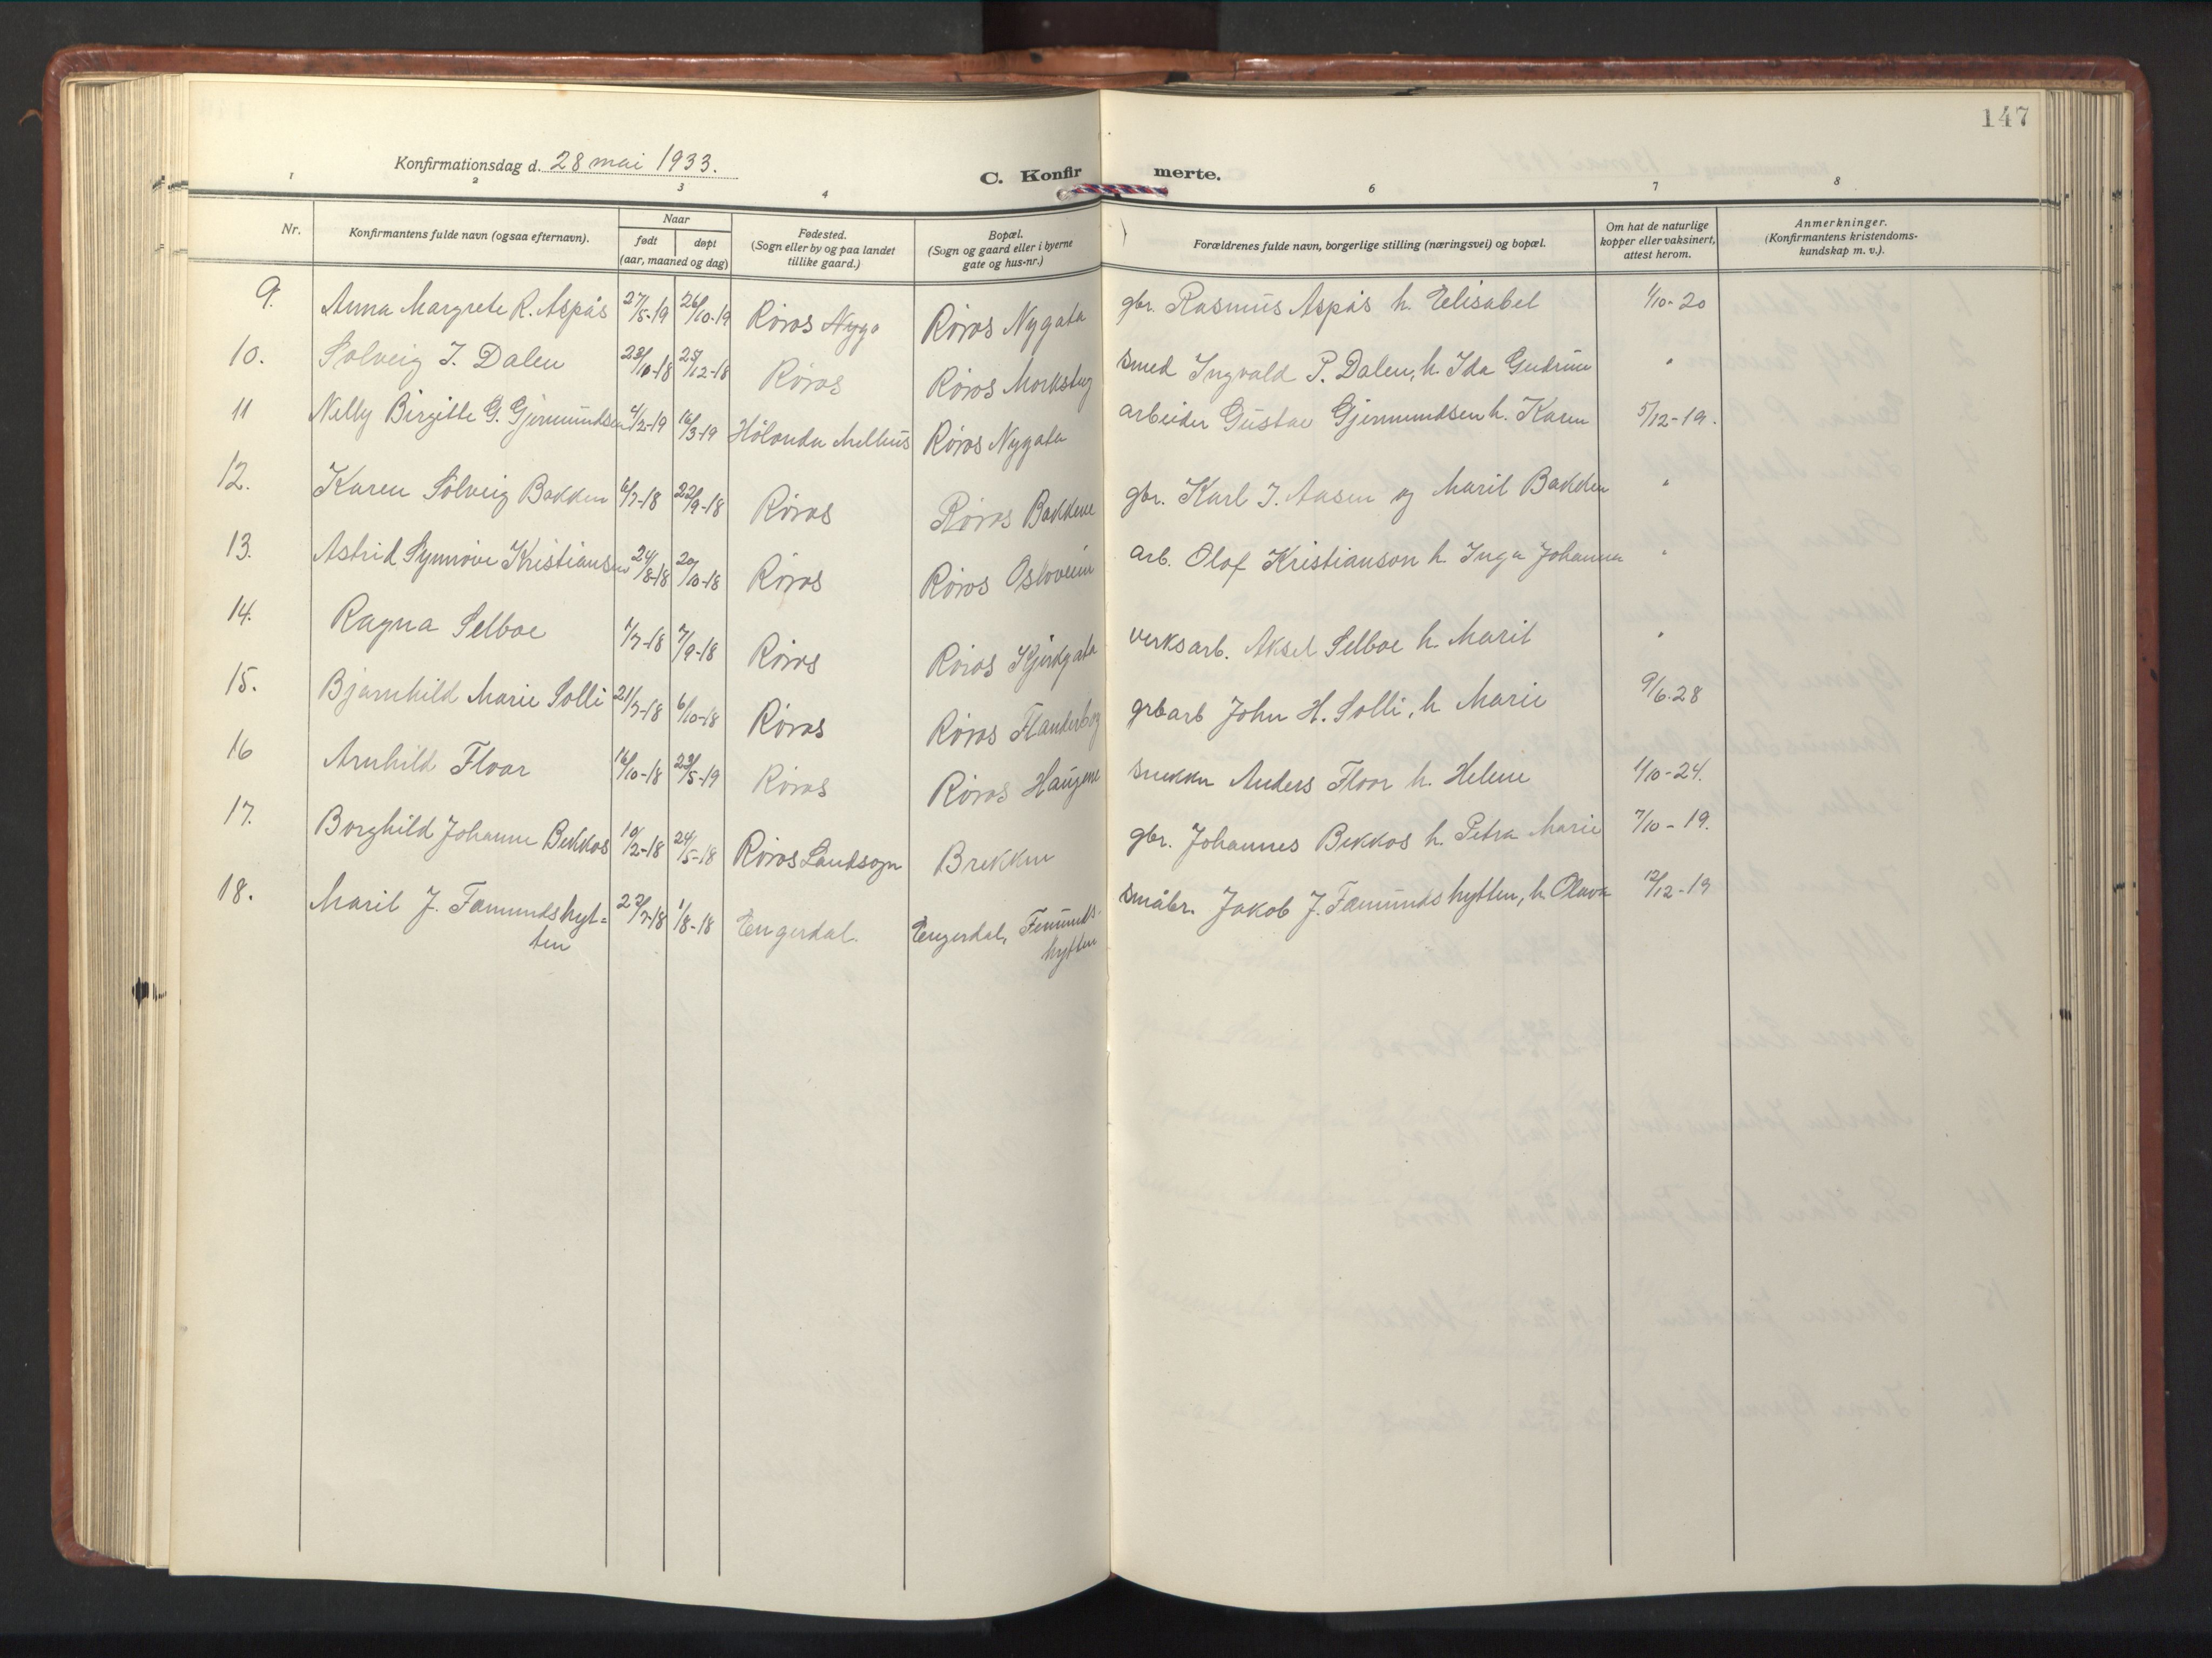 147
Konfirmationsdag d. 28 mai 1933.
C. Konfirmerte.
1 2 3 4 6 7 8
Nr. Konfirmantens fulde navn (ogsaa efternavn). Naar født døpt (aar, maaned og dag) Fødested. (Sogn eller by og paa landet tillike gaard.) Bopæl. (Sogn og gaard eller i byerne gate og hus-nr.) Forældrenes fulde navn, borgerlige stilling (næringsvei) og bopæl. Om hat de naturlige kopper eller vaksinert, attest herom. Anmerkninger. (Konfirmantens kristendoms-kundskap m. v.).
9. Anna Margrete R. Aspås 27/8-19 26/10-19 Røros Røros Nygata gbr. Rasmus Aspås h. Elisabet 1/10-20
10. Solveig I. Dalen 23/10-18 25/12-18 Røros Røros Morkstug smed Ingvald P. Dalen, h. Ida Gudrun "
11 Nelly Birgitte G. Gjermundsen 4/2-19 16/3-19 Hølonda Melhus Røros Nygata arbeider Gustav Gjermundsen h. Karen 5/12-19.
12. Karen Solveig Bakken 6/7-18 22/9-18 Røros Røros Bakkene gbr. Karl J. Aasen og Marit Bakken "
13. Astrid Synnøve Kristiansen 24/8-18 20/10-18 Røros Røros Osloveien arb. Olof Kristianson h. Inga Johanna "
14. Ragna Selboe 1/7-18 7/9-18 Røros Røros Kjerkgata verksarb. Aksel Selboe h. Marit "
15. Bjarnhild Marie Solli 21/7-18 6/10-18 Røros Røros Flanderborg grbarb John H. Solli, h. Marie 9/6-28
16 Arnhild Floor 16/10-18 23/5-19 Røros Røros Haugene snekker Anders Floor h. Helene 1/10-24.
17. Borghild Johanne Bekkos 10/2-18 24/5-18 Røros Landsogn Brekken gbr. Johannes Bekkos h. Petra Marie 7/10-19.
18. Marit J. Fæmundshyt=
ten 22/7-18 1/8-18 Engerdal. Engerdal, Femunds-
hytten småbr. Jakob J. Fæmundshytten, h. Olava 12/12-19